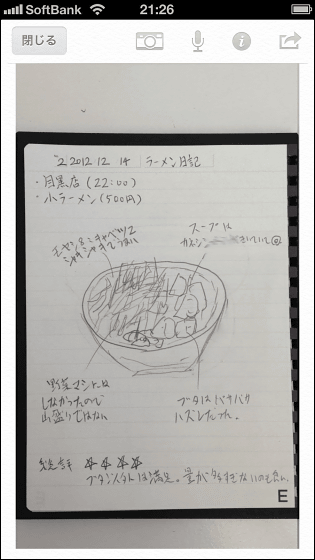 SoftBank 21:26
閉じる
2012 12 14 ラーメン日記
・目黒店(22:00)
・小ラーメン(500円)
モヤシ&キャベツ
シャキシャキでうまい
スープは
カネシ きいていて◎
野菜マシ
しなかったので
山盛りではない
ブタはパサパサ
ハズレだった。
ブタ以外は満足。量が多すぎないのも良い。
E